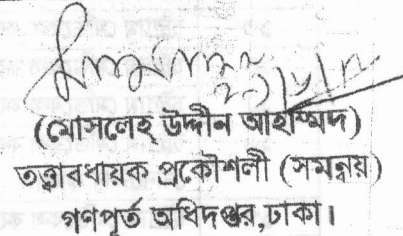 (মোসলেহ উদ্দীন আহাম্মদ)
তত্ত্বাবধায়ক প্রকৌশলী (সমন্বয়)
গণপূর্ত অধিদপ্তর,ঢাকা।